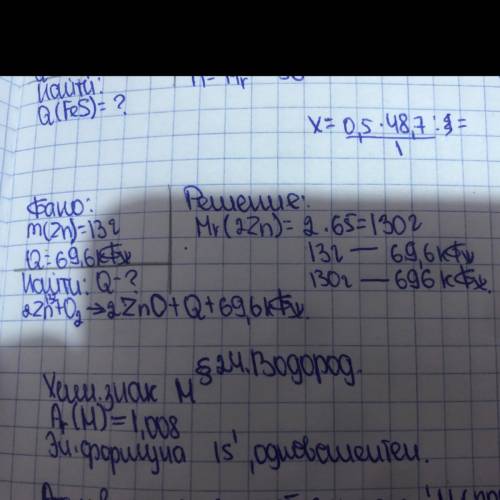 Найти:
Q(FeS)=?
x= 0,5·48,7:1=
1
Дано:
m(Zn)=13г
Q=69,6кДж
Найти: Q-?
2Zn+O₂→2ZnO+Q+69,6кДж.
Решение:
Mr(2Zn)= 2·65=130г
13г — 69,6кДж
130г — 696кДж.
§24. Водород.
Хим. знак Н
Ar(H)=1,008
Эл. формула 1s¹, одновалентен.